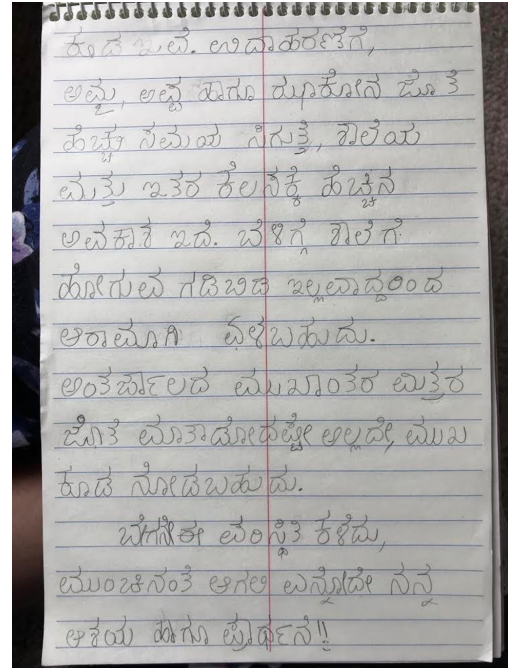 ಕೂಡ ಇವೆ. ಉದಾಹರಣೆಗೆ,
ಅಮ್ಮ, ಅಪ್ಪ ಹಾಗೂ ಝಾಕೋನ ಜೊತೆ
ಹೆಚ್ಚು ಸಮಯ ಸಿಗುತ್ತೆ, ಶಾಲೆಯ
ಮತ್ತು ಇತರ ಕೆಲಸಕ್ಕೆ ಹೆಚ್ಚಿನ
ಅವಕಾಶ ಇದೆ. ಬೆಳಿಗ್ಗೆ ಶಾಲೆಗೆ
ಹೋಗುವ ಗಡಿಬಿಡಿ ಇಲ್ಲವಾದ್ದರಿಂದ
ಆರಾಮಾಗಿ ಏಳಬಹುದು.
ಅಂತರ್ಜಾಲದ ಮುಖಾಂತರ ಮಿತ್ರರ
ಜೊತೆ ಮಾತಾಡೋದಷ್ಟೇ ಅಲ್ಲದೇ, ಮುಖ
ಕೂಡ ನೋಡಬಹುದು.
ಬೇಗನೇ ಈ ಪರಿಸ್ಥಿತಿ ಕಳೆದು,
ಮುಂಚಿನಂತೆ ಆಗಲಿ ಎನ್ನೋದೇ ನನ್ನ
ಆಶಯ ಹಾಗೂ ಪ್ರಾರ್ಥನೆ!!